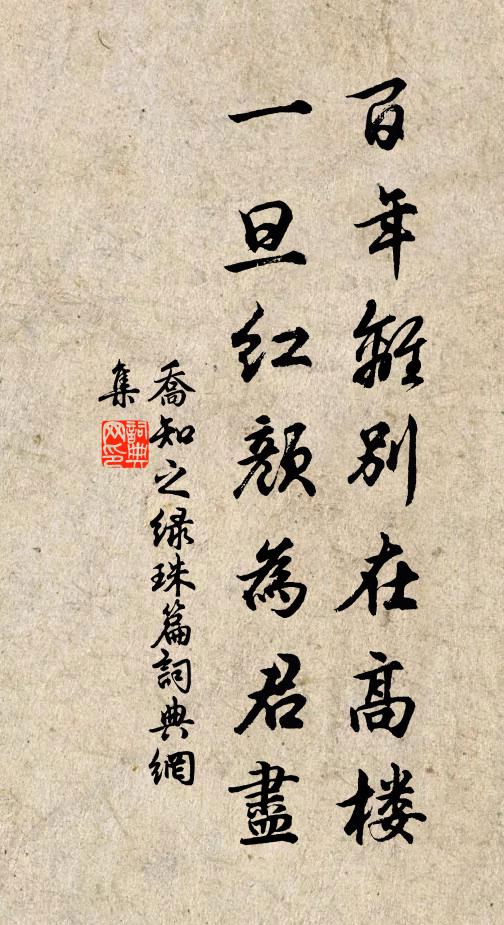 百年離別在高楼
一旦紅顔為君盡
喬知之緑珠篇詞典網
集
詞典
网印